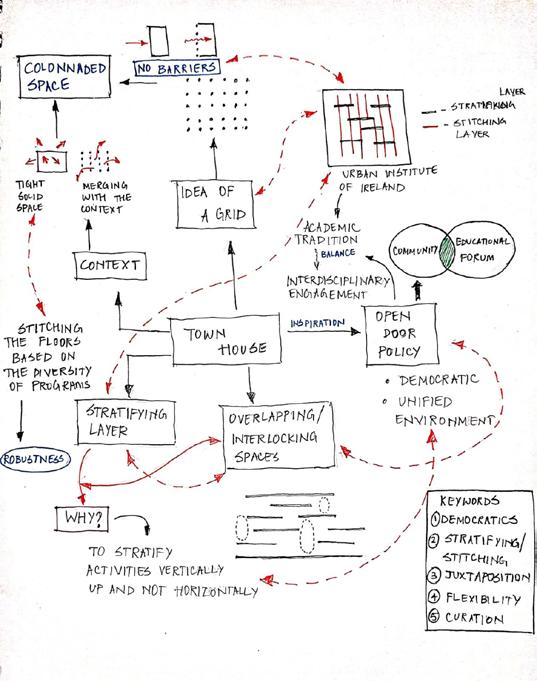 COLONNADED
SPACE
NO BARRIERS
LAYER
- STRATIFYING
- STITCHING
LAYER
URBAN INSTITUTE
OF IRELAND
TIGHT
SOLID
SPACE
MERGING
WITH THE
CONTEXT
IDEA OF
A GRID
ACADEMIC
TRADITION
BALANCE
INTERDISCIPLINARY
ENGAGEMENT
COMMUNITY
EDUCATIONAL
FORUM
CONTEXT
STITCHING
THE FLOORS
BASED ON
THE DIVERSITY
OF PROGRAMS
TOWN
HOUSE
INSPIRATION
OPEN
DOOR
POLICY
• DEMOCRATIC
• UNIFIED
ENVIRONMENT
STRATIFYING
LAYER
OVERLAPPING/
INTERLOCKING
SPACES
ROBUSTNESS
WHY?
TO STRATIFY
ACTIVITIES VERTICALLY
UP AND NOT HORIZONTALLY
KEYWORDS
① DEMOCRATICS
② STRATIFYING/
STITCHING
③ JUXTAPOSITION
④ FLEXIBILITY
⑤ CURATION